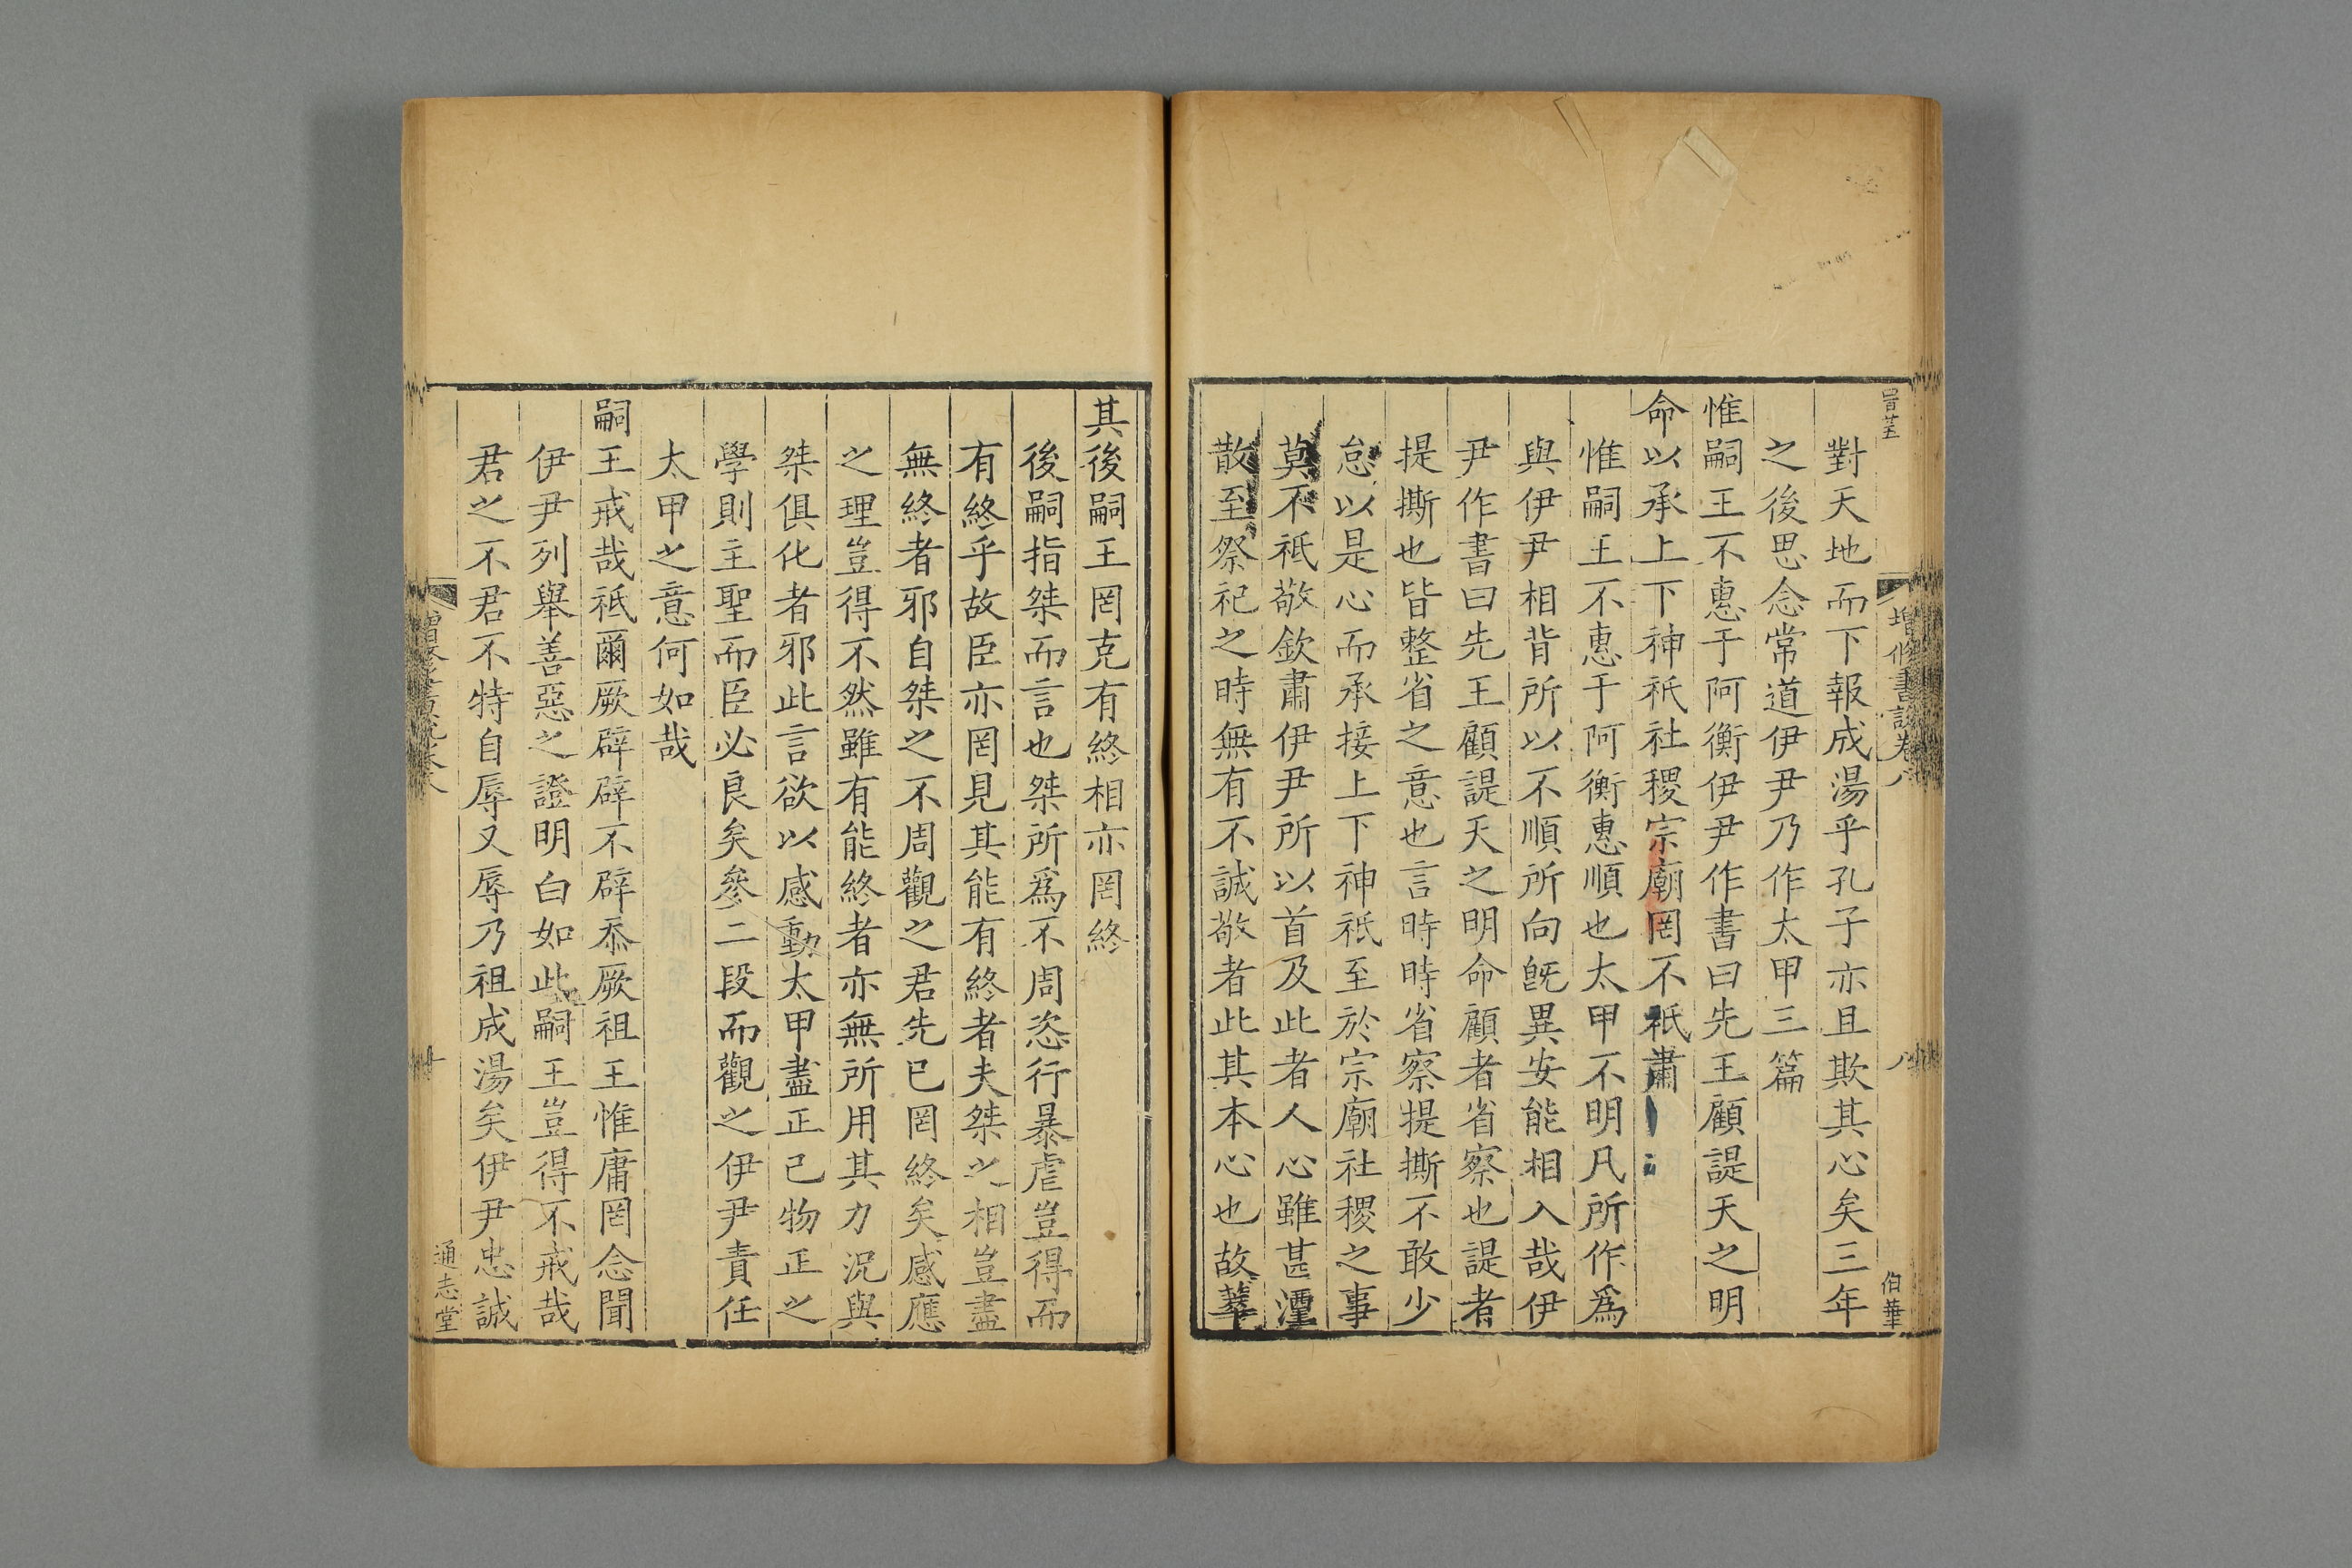 對天地而下報成湯乎孔子亦且欺其心矣三年
之後思念常道伊尹乃作太甲三篇
惟嗣王不惠于阿衡伊尹作書曰先王顧諟天之明
命以承上下神祇社稷宗廟罔不祇肅
惟嗣王不惠于阿衡惠順也太甲不明凡所作爲
與伊尹相背所以不順所向旣異安能相入哉伊
尹作書曰先王顧諟天之明命顧者省察也諟者
提撕也皆整省之意也言時時省察提撕不敢少
怠以是心而承接上下神祇至於宗廟社稷之事
莫不祇敬欽肅伊尹所以首及此者人心雖甚
散至祭祀之時無有不誠敬者此其本心也故萃
增修書説卷八
八
伯華
其後嗣王罔克有終相亦罔終
後嗣指桀而言也桀所爲不周恣行暴虐豈得而
有終乎故臣亦罔見其能有終者夫桀之相豈盡
無終者邪自桀之不周觀之君先已罔終矣感應
之理豈得不然雖有能終者亦無所用其力況與
桀俱化者邪此言欲以感動太甲盡正己物正之
學則主聖而臣必良矣參二段而觀之伊尹責任
太甲之意何如哉
嗣王戒哉祇爾厥辟辟不辟忝厥祖王惟庸罔念聞
伊尹列舉善惡之證明白如此嗣王豈得不戒哉
君之不君不特自辱又辱乃祖成湯矣伊尹忠誠
通志堂